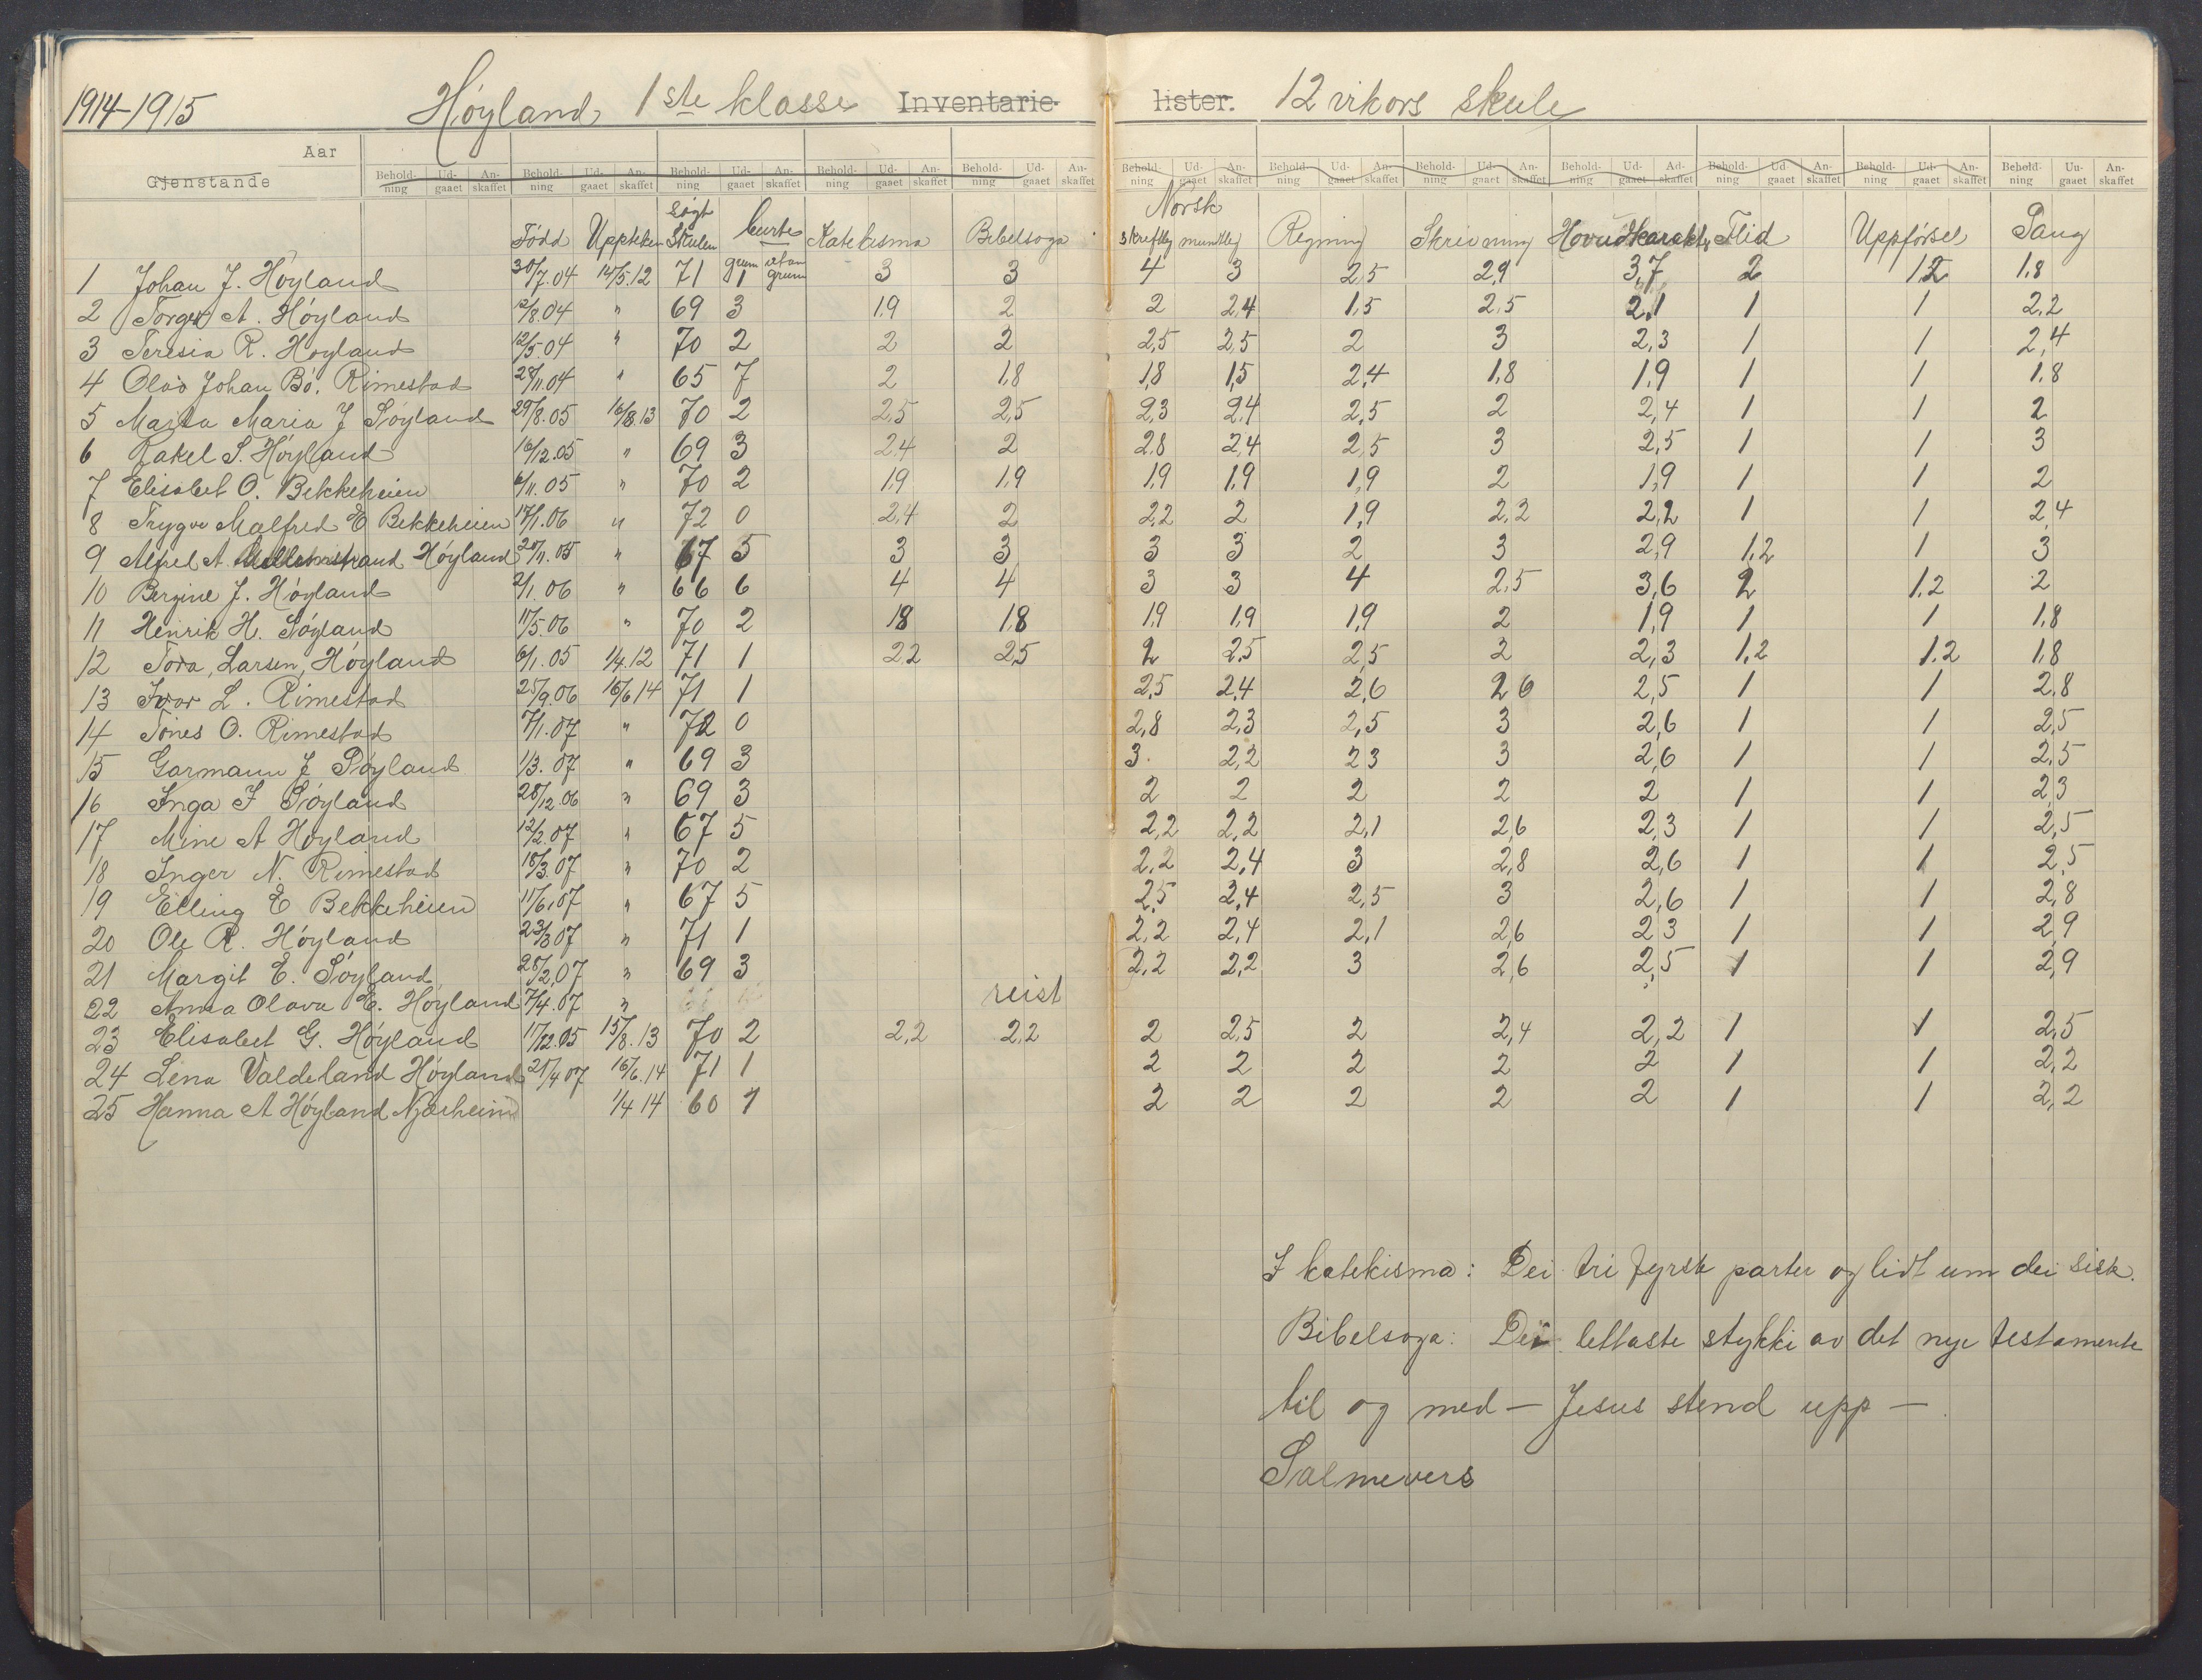 1914-1915 Høyland 1ste klasse Inventarie- lister. 12 vikors skule
Aar
Gjenstande
Behold-ning Ud-gaaet An-skaffet Behold-ning Ud-gaaet An-skaffet Behold-ning Ud-gaaet An-skaffet Behold-ning Ud-gaaet An-skaffet Behold-ning Ud-gaaet An-skaffet Behold-ning Ud-gaaet An-skaffet Behold-ning Ud-gaaet An-skaffet Behold-ning Ud-gaaet An-skaffet Behold-ning Ud-gaaet Ad-skaffet Behold-ning Ud-gaaet An-skaffet Behold-ning Ud-gaaet An-skaffet Behold-ning Uu-gaaet An-skaffet
Født Uppteken Søgt Skulen burte Katekisma Bibelsoga Norsk skriftleg munnleg Regning Skrivning Hovudkarakter Flid Uppførsel Sang
grun utan grun
1 Johan J. Høyland 30/7.04 14/5.12 71 1 3 3 4 3 2,5 2,9 3,7 2 1,2 1,8
2 Torger A. Høyland 12/8.04 " 69 3 1,9 2 2 2,4 1,5 2,5 2,1 1 1 2,2
3 Teresia R. Høyland 12/5.04 " 70 2 2 2 2,5 2,5 2 3 2,3 1 1 2,4
4 Olav Johan Bö. Rimestad 28/11.04 " 65 7 2 1,8 1,8 1,5 2,4 1,8 1,9 1 1 1,8
5 Marta Maria J Søyland 29/8.05 16/8.13 70 2 2,5 2,5 2,3 2,4 2,5 2 2,4 1 1 2
6 Rakel S. Høyland 16/12.05 " 69 3 2,4 2 2,8 2,4 2,5 3 2,5 1 1 3
7 Elisabet O. Bekkeheien 6/11.05 " 70 2 1,9 1,9 1,9 1,9 1,9 2 1,9 1 1 2
8 Trygve Malfred E Bekkeheien 17/1.06 " 72 0 2,4 2 2,2 2 1,9 2,2 2,2 1 1 2,4
9 Alfred A. Høyland 20/11.05 " 67 5 3 3 3 3 2 3 2,9 1,2 1 3
10 Bergine J. Høyland 2/1.06 " 66 6 4 4 3 3 4 2,5 3,6 2 1,2 2
11 Henrik H. Søyland 17/5.06 " 70 2 1,8 1,8 1,9 1,9 1,9 2 1,9 1 1 1,8
12 Tora, Larsen, Høyland 6/1.05 1/4.12 71 1 2,2 2,5 2 2,5 2,5 2 2,3 1,2 1,2 1,8
13 Ivar L. Rimestad 25/9.06 16/6 14 71 1 2,5 2,4 2,6 2 6 2,5 1 1 2,8
14 Tönes O. Rimestad 7/1.07 " 72 0 2,8 2,3 2,5 3 2,6 1 1 2,5
15 Garmann J Søyland 1/3.07 " 69 3 3. 2,2 2 3 3 2,6 1 1 2,5
16 Inga J Søyland 28/12.06 " 69 3 2 2 2 2 2 1 1 2,3
17 Mine A Høyland 12/2.07 " 67 5 2,2 2,2 2,1 2,6 2,3 1 1 2,5
18 Inger N. Rimestad 18/3.07 " 70 2 2,2 2,4 3 2,8 2,6 1 1 2,5
19 Elling E Bekkeheien 11/6.07 " 67 5 2,5 2,4 2,5 3 2,6 1 1 2,8
20 Ole R. Høyland 23/3 07 " 71 1 2,2 2,4 2,1 2,6 2 3 1 1 2,9
21 Margit E. Søyland 28/2.07 " 69 3 2,2 2,2 3 2,6 2,5 1 1 2,9
22 Anna Olava E. Høyland 7/4.07 " reist
23 Elisabet G. Høyland 11/12.05 15/8.13 70 2 2,2 2,2 2 2,5 2 2,4 2,2 1 1 2,5
24 Lena Valdeland Høyland 21/4 07 16/6.14 71 1 2 2 2 2 2 1 1 2,2
25 Hanna A Høyland Njærheim 1/4 14 60 7 2 2 2 2 2 1 1 2,2
I katekisma: Dei tri fyrste parter og lidt um dei sist.
Bibelsoga: Dei lettaste stykki av det nye testamente
til og med – Jesus stend upp –
Salmevers